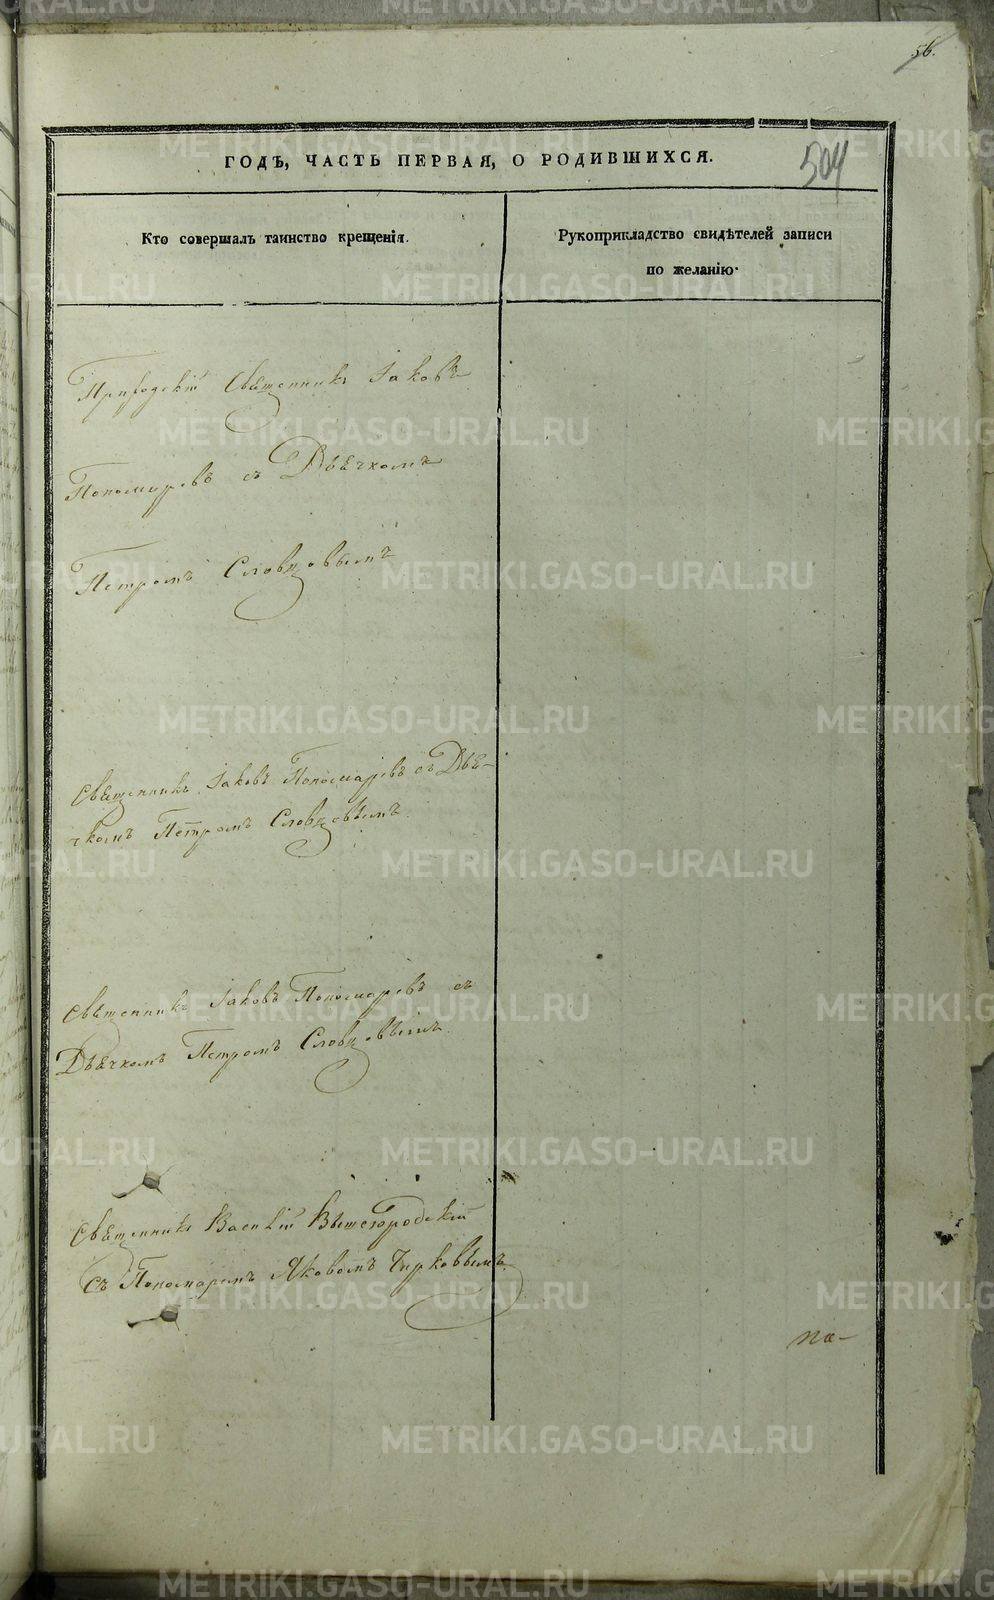 56.
504
ГОДЪ, ЧАСТЬ ПЕРВАЯ, О РОДИВШИХСЯ.
Кто совершалъ таинство крещенія.
Рукоприкладство свидѣтелей записи
по желанію.
Приходскій Священникъ Іаковъ
Пономаревъ съ Дьячкомъ
Петромъ Словцовымъ
Священникъ Іаковъ Пономаревъ съ Дья-
чкомъ Петромъ Словцовымъ.
Священникъ Іаковъ Пономаревъ съ
Дьячкомъ Петромъ Словцовымъ.
Священникъ Василій Вышегородскій
съ Пономаремъ Яковомъ Чирковымъ.
по-
METRIKI.GASO-URAL.RU